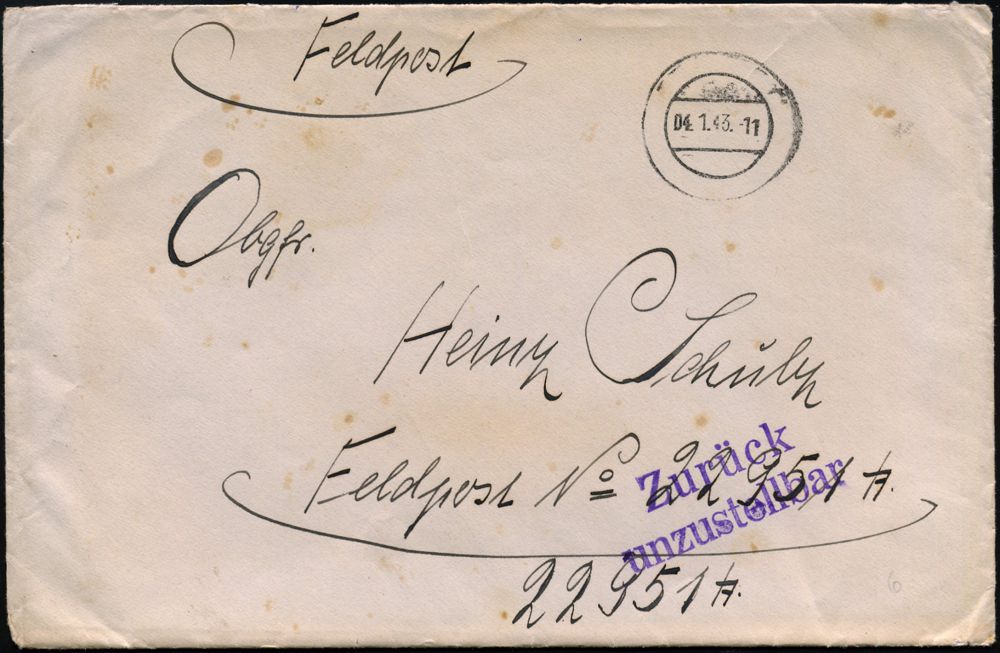 Feldpost
04.1.43.-11
Obgfr.
Heinz Schulz
Feldpost No 22951 A.
Zurück
unzustellbar
22951 A.
6